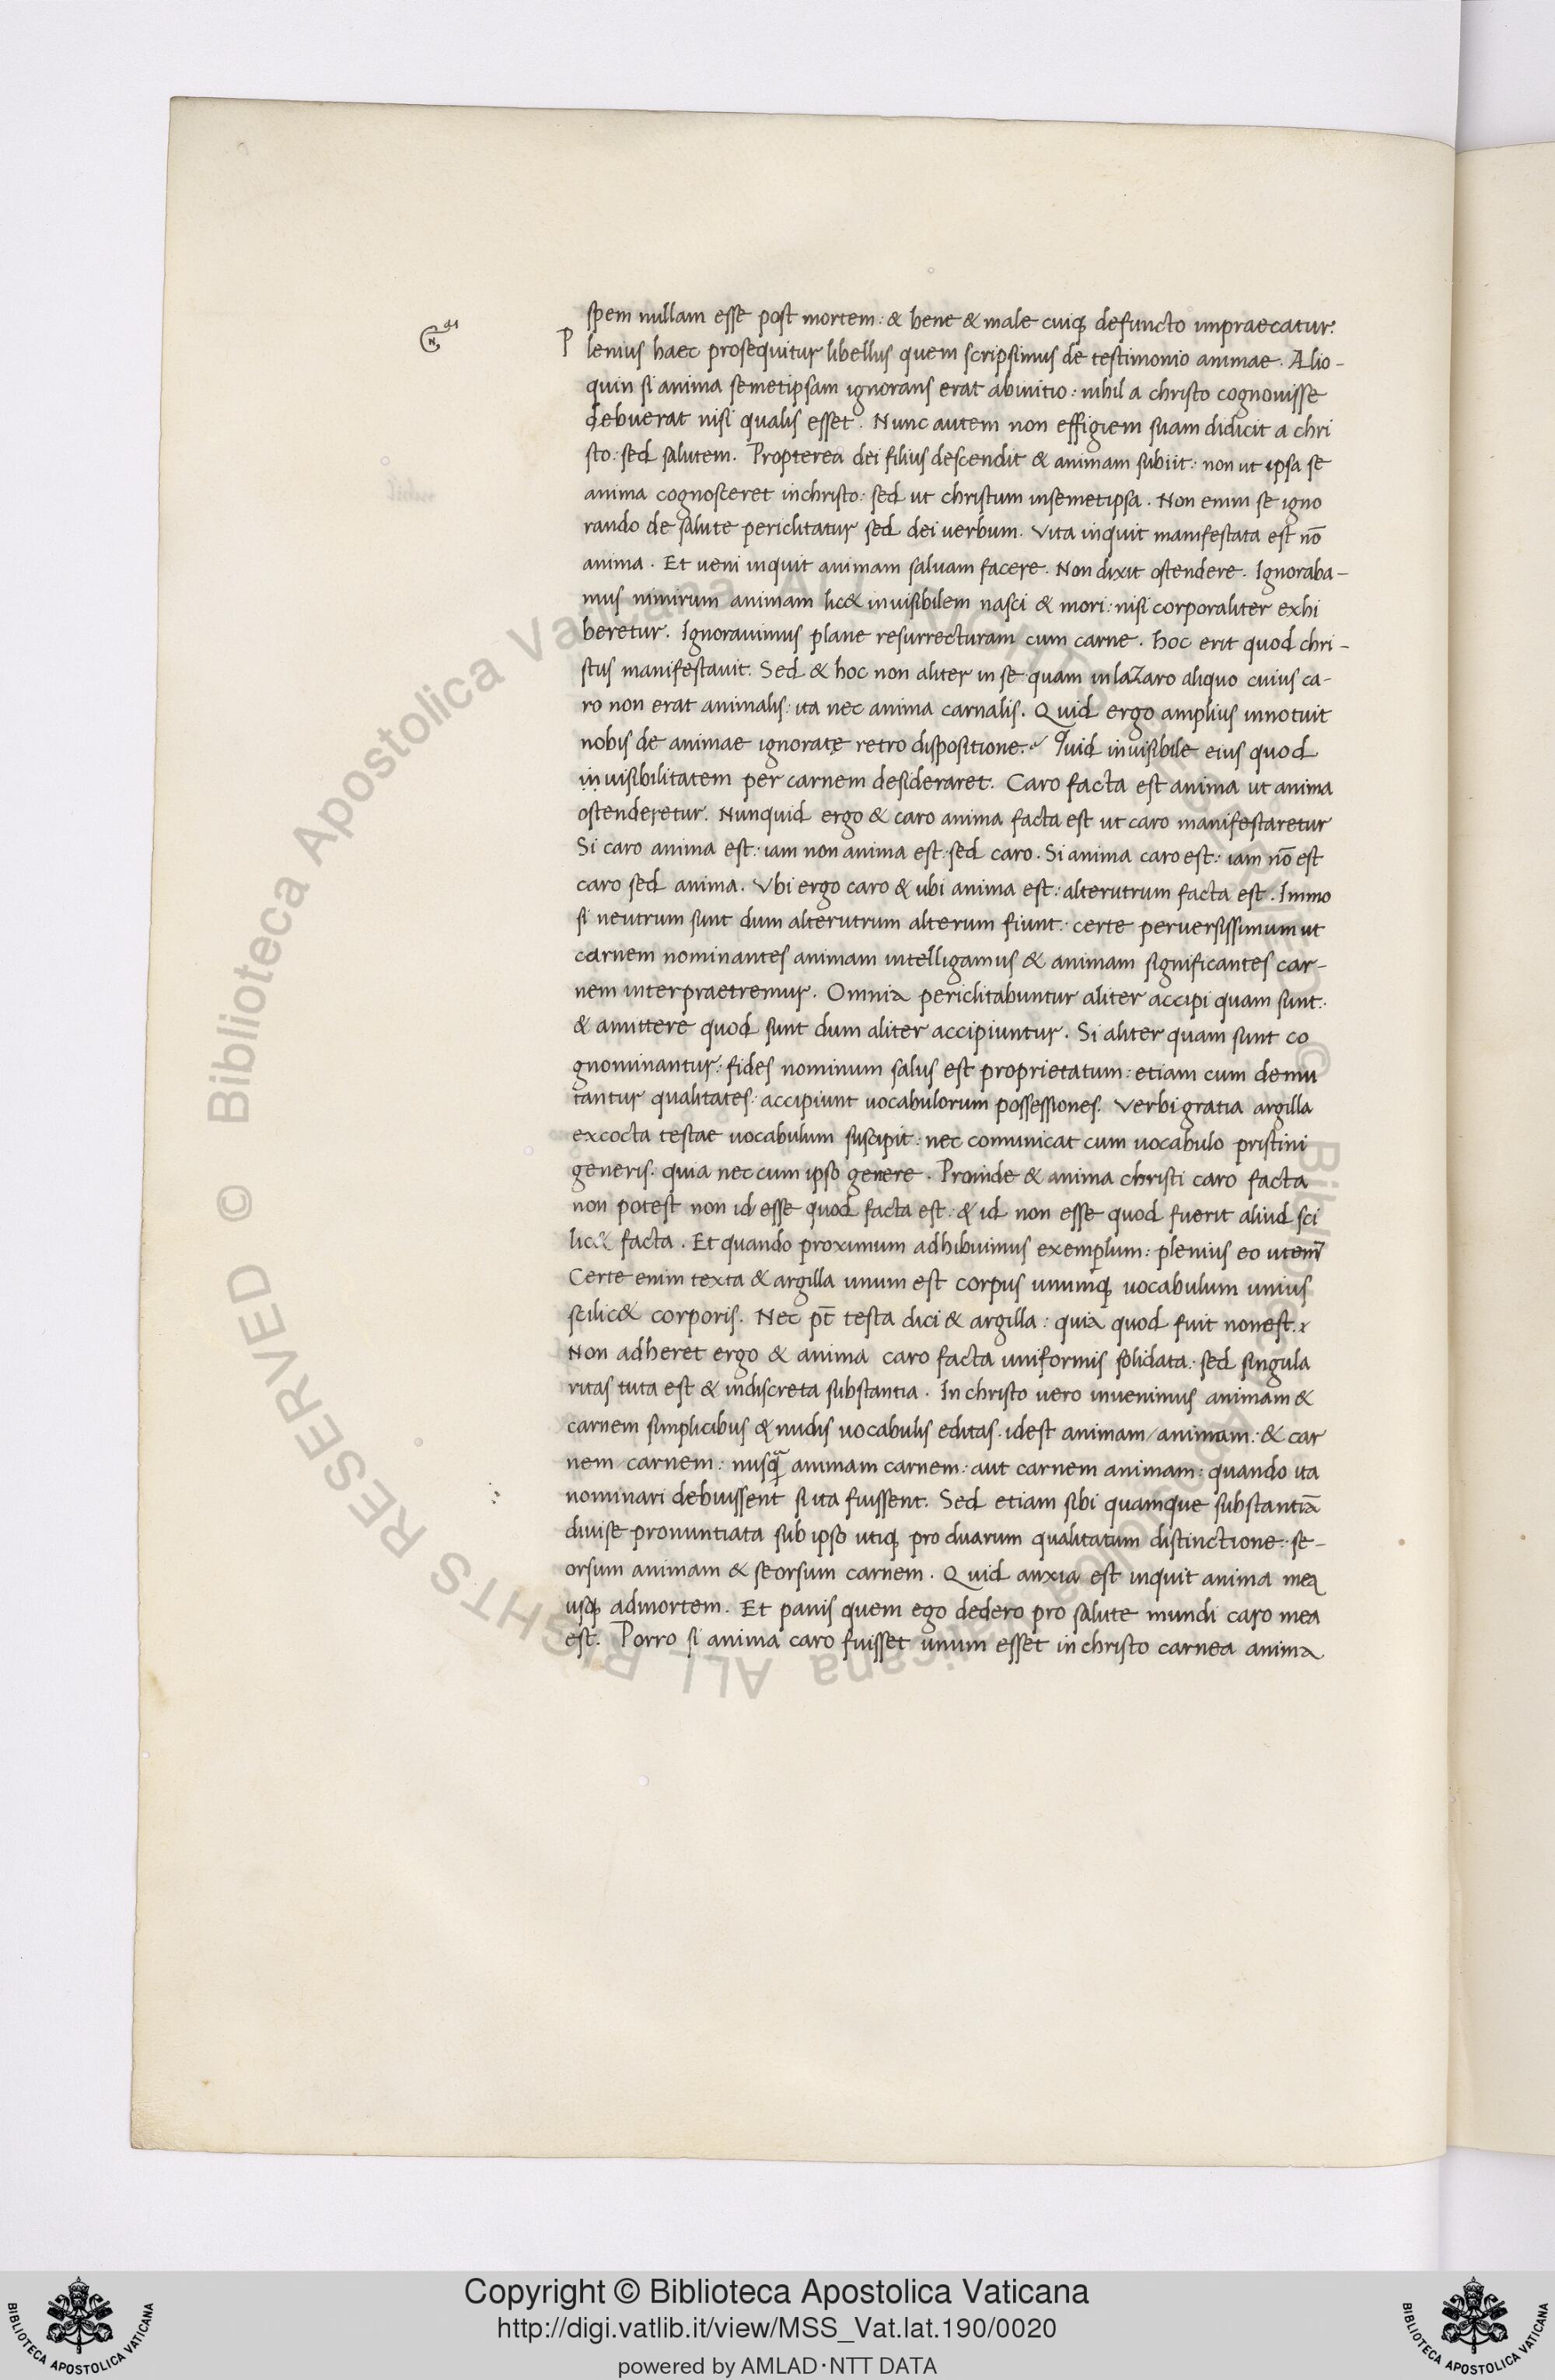 spem nullam esse post mortem: & bene & male cuiq; defuncto impraecatur.
P lenius haec prosequitur libellus quem scripsimus de testimonio animae. Alio-
quin si anima semetipsam ignorans erat abinitio: nihil a christo cognouisse
debuerat nisi qualis esset. Nunc autem non effigiem suam didicit a chri
sto: sed salutem. Propterea dei filius descendit & animam subiit: non ut ipsa se
anima cognosceret inchristo: sed ut christum insemetipsa. Non enim se igno
rando de salute periclitatur sed dei uerbum. Vita inquit manifestata est nō
anima. Et ueni inquit animam saluam facere. Non dixit ostendere. Ignoraba-
mus nimirum animam lic& inuisibilem nasci & mori: nisi corporaliter exhi
beretur. Ignorauimus plane resurrecturam cum carne. hoc erit quod chri-
stus manifestauit. Sed & hoc non aliter in se quam inlazaro aliquo cuius ca-
ro non erat animalis: ita nec anima carnalis. Quid ergo amplius innotuit
nobis de animae ignoratę retro dispositione. Quid inuisibile eius quod
inuisibilitatem per carnem desideraret. Caro facta est anima ut anima
ostenderetur. Nunquid ergo & caro anima facta est ut caro manifestaretur
Si caro anima est: iam non anima est: sed caro. Si anima caro est: iam nō est
caro sed anima. Vbi ergo caro & ubi anima est: alterutrum facta est. Immo
si neutrum sunt dum alterutrum alterum fiunt: certe peruersissimum ut
carnem nominantes animam intelligamus & animam significantes car-
nem interpraetremur. Omnia periclitabuntur aliter accipi quam sunt:
& amittere quod sunt dum aliter accipiuntur. Si aliter quam sunt co
gnominantur: fides nominum salus est proprietatum: etiam cum demu
tantur qualitates: accipiunt uocabulorum possessiones. Verbi gratia argilla
excocta testae uocabulum suscipit: nec comunicat cum uocabulo pristini
generis. quia nec cum ipso genere. Proinde & anima christi caro facta
non potest non id esse quod facta est: & id non esse quod fuerit aliud sci
lic& facta. Et quando proximum adhibuimus exemplum: plenius eo utem̃
Certe enim texta & argilla unum est corpus unumq; uocabulum unius
scilic& corporis. Nec pt̄ testa dici & argilla: quia quod fuit nonest.
Non adheret ergo & anima caro facta uniformis solidata: sed singula
ritas tuta est & indiscreta substantia. In christo uero inuenimus animam &
carnem simplicibus & nudis uocabulis editas. idest animam/animam: & car
nem/carnem: nusq̄ animam carnem: aut carnem animam: quando ita
nominari debuissent si ita fuissent. Sed etiam sibi quamque substantiā
diuise pronuntiata sub ipso utiq; pro duarum qualitatum distinctione: se-
orsum animam & seorsum carnem. Quid anxia est inquit anima mea
usq; admortem. Et panis quem ego dedero pro salute mundi caro mea
est. Porro si anima caro fuisset unum esset in christo carnea anima
© Biblioteca Apostolica Vaticana ALL RIGHTS RESERVED
Copyright © Biblioteca Apostolica Vaticana
http://digi.vatlib.it/view/MSS_Vat.lat.190/0020
powered by AMLAD·NTT DATA
BIBLIOTECA APOSTOLICA VATICANA
BIBLIOTECA APOSTOLICA VATICANA